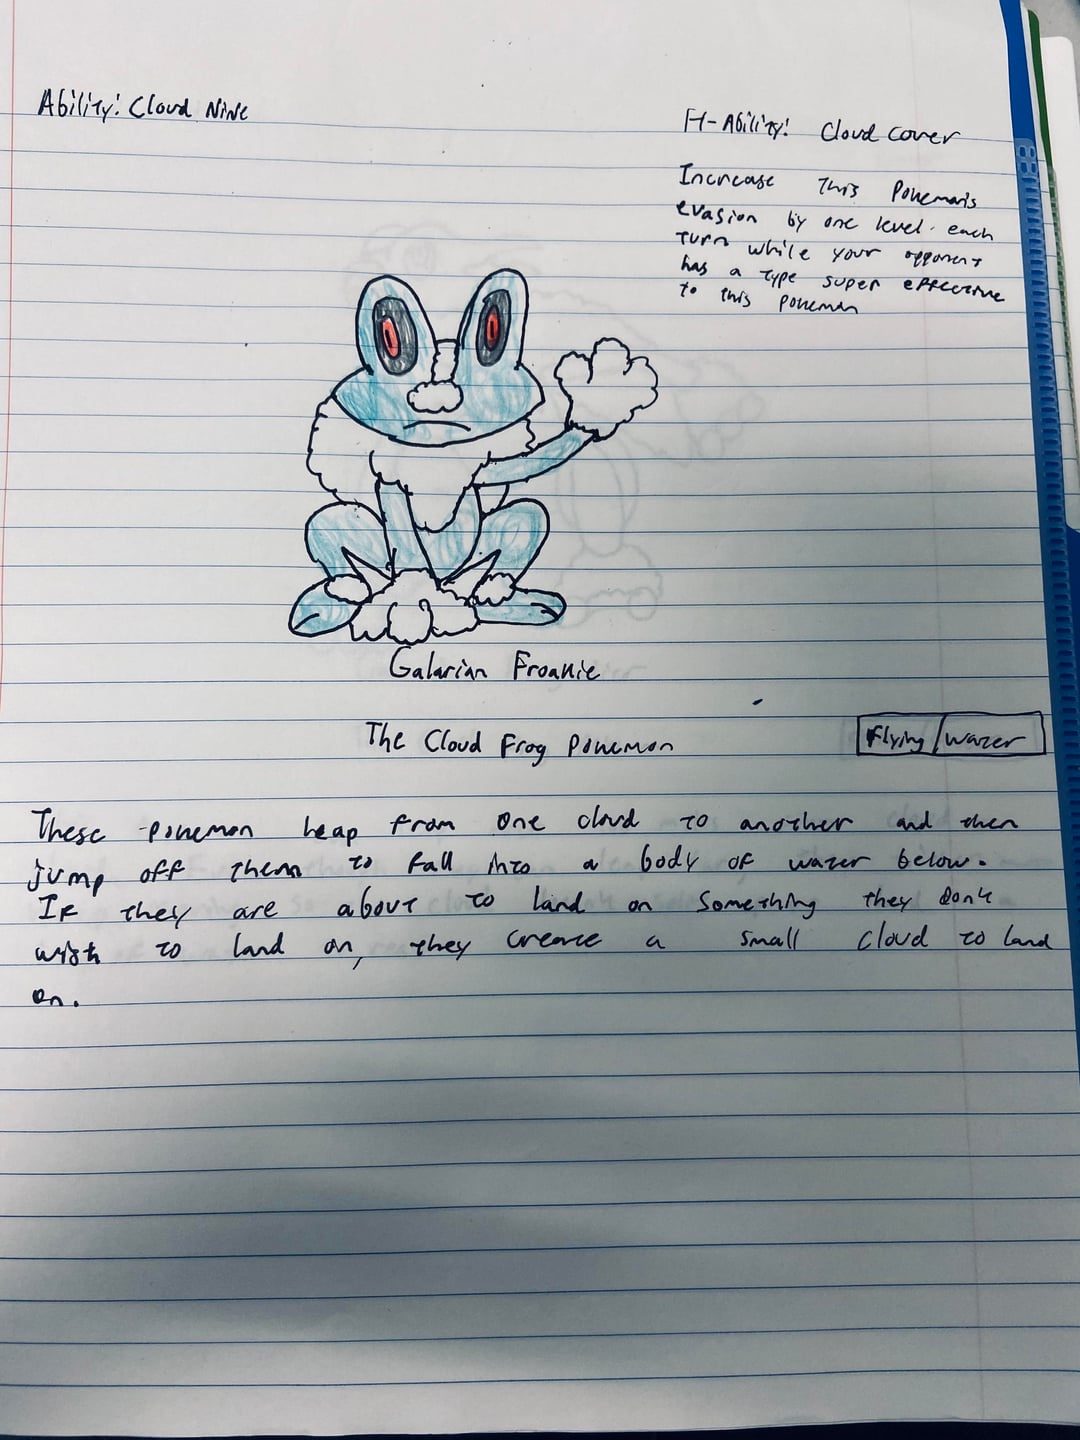 Ability: Cloud Nine
H-Ability: Cloud Cover
Increase this Pokemon's
evasion by one level each
turn while your opponent
has a type super effective
to this pokemon
Galarian Froakie
The Cloud Frog Pokemon
Flying/water
These pokemon leap from one cloud to another and then
jump off them to fall into a body of water below.
If they are about to land on something they don't
wish to land on, they create a small cloud to land
on.